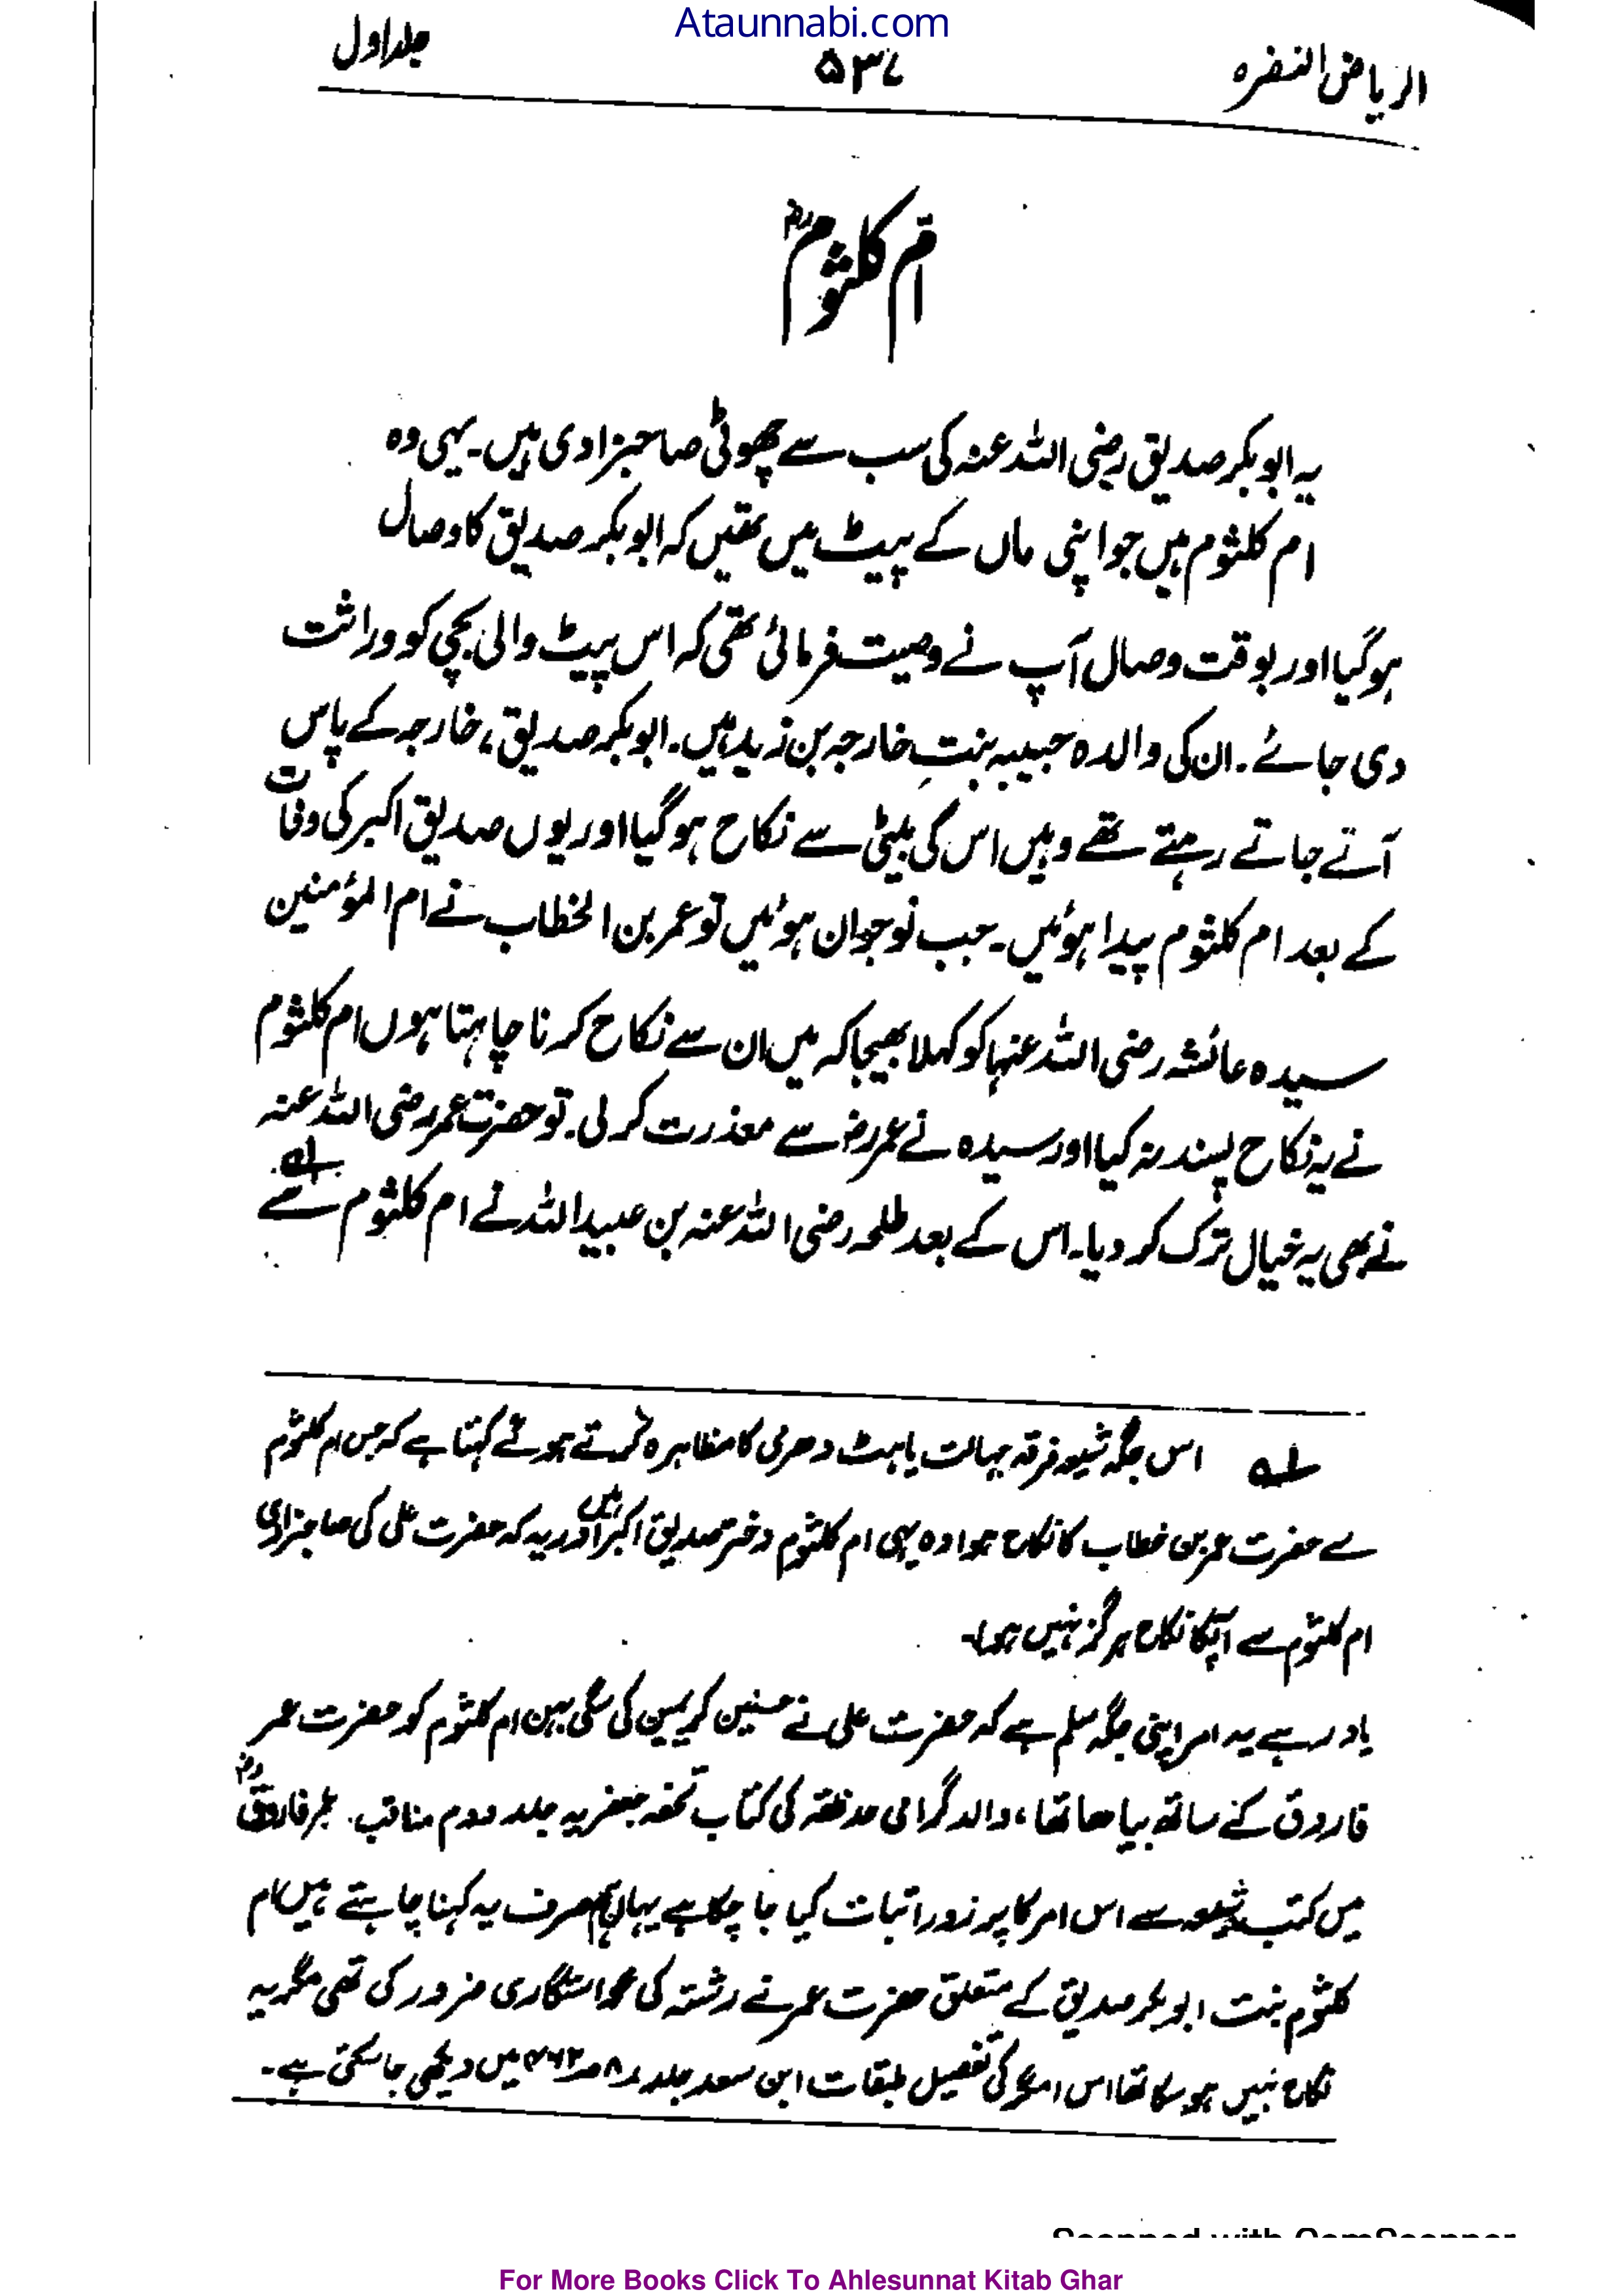 Ataunnabi.com
الریاض النضرہ ۵۳۷ جلد اول
اُمِّ کلثومؓ
یہ ابوبکر صدیق رضی اللہ عنہ کی سب سے چھوٹی صاحبزادی ہیں۔ یہی وہ
ام کلثوم ہیں جو اپنی ماں کے پیٹ میں تھیں کہ ابوبکر صدیق کا وصال
ہو گیا اور بوقت وصال آپ نے وصیت فرمائی تھی کہ اس پیٹ والی بچی کو وراثت
دی جائے۔ ان کی والدہ حبیبہ بنتِ خارجہ بن زید ہیں۔ ابوبکر صدیق، خارجہ کے پاس
آتے جاتے رہتے تھے وہیں اس کی بیٹی سے نکاح ہو گیا اور یوں صدیق اکبر کی وفات
کے بعد ام کلثوم پیدا ہوئیں۔ جب نوجوان ہوئیں تو عمر بن الخطاب نے ام المؤمنین
سیدہ عائشہ رضی اللہ عنہا کو کہلا بھیجا کہ میں ان سے نکاح کرنا چاہتا ہوں ام کلثوم
نے یہ نکاح پسند نہ کیا اور سیدہ نے عمرؓ سے معذرت کر لی۔ تو حضرت عمر رضی اللہ عنہ
نے بھی یہ خیال ترک کر دیا۔ اس کے بعد طلحہ رضی اللہ عنہ بن عبیداللہ نے ام کلثوم سے لہ
لہ اس جگہ شیعہ فرقہ جہالت یا ہٹ دھرمی کا مظاہرہ کرتے ہوئے کہتا ہے کہ جس ام کلثوم
سے حضرت عمر بن خطاب کا نکاح ہوا وہ یہی ام کلثوم دختر صدیق اکبر ہیں اور یہ کہ حضرت علی کی صاحبزادی
ام کلثوم سے آپکا نکاح ہرگز نہیں ہوا۔
یاد رہے یہ امر اپنی جگہ مسلم ہے کہ حضرت علی نے حسنین کریمین کی سگی بہن ام کلثوم کو حضرت عمر
فاروق کے ساتھ بیاھا تھا، والد گرامی مدظلہ کی کتاب تحفہ جعفریہ جلد دوم مناقب عمر فاروقؓ
میں کتب شیعہ سے اس امر کا پرزور اثبات کیا جا چکا ہے یہاں ہم صرف یہ کہنا چاہتے ہیں کہ ام
کلثوم بنت ابوبکر صدیق کے متعلق حضرت عمر نے رشتہ کی خواستگاری ضرور کی تھی مگر یہ
نکاح نہیں ہو سکا تھا اس امر کی تفصیل طبقات ابن سعد جلد ۸ صـ ۴۶۲ میں دیکھی جا سکتی ہے۔
Scanned with CamScanner
For More Books Click To Ahlesunnat Kitab Ghar